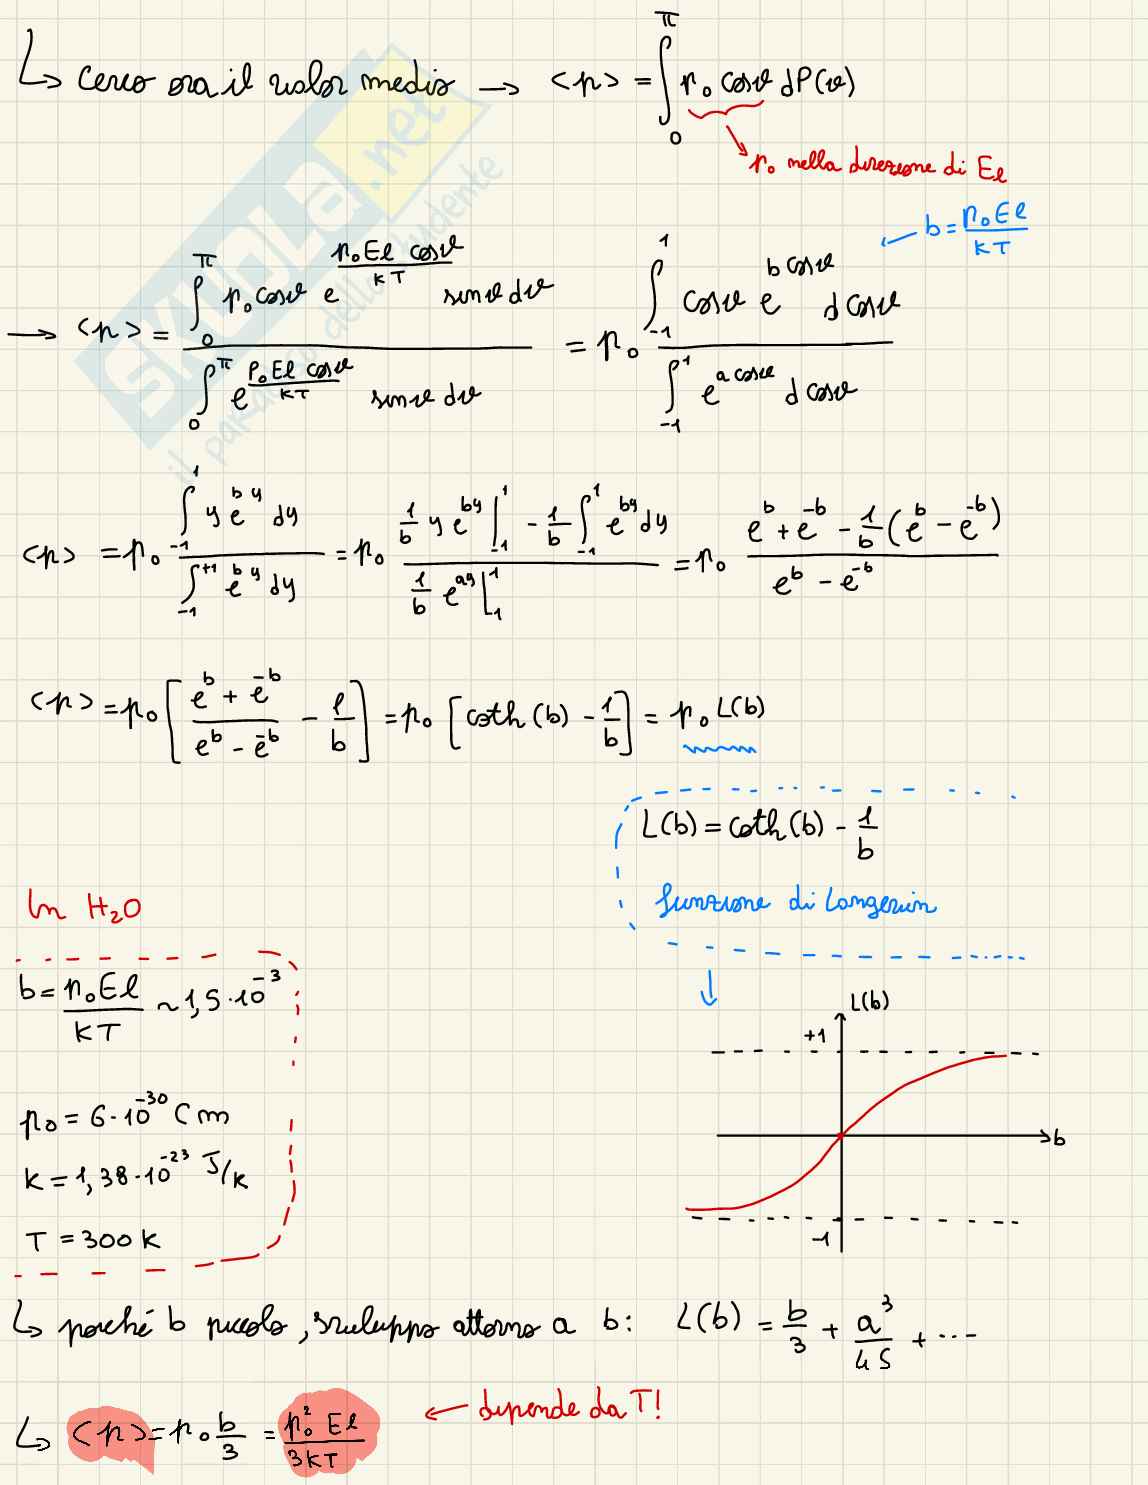 ↳ Cerco ora il valor medio → <p> = ∫₀^π p₀ cosϑ dP(ϑ)
p₀ nella direzione di El
b = p₀El / kT
→ <p> = ∫₀^π p₀ cosϑ e^(p₀El cosϑ / kT) sinϑ dϑ / ∫₀^π e^(p₀El cosϑ / kT) sinϑ dϑ = p₀ ∫₋₁^1 cosϑ e^(b cosϑ) d cosϑ / ∫₋₁^1 e^(a cosϑ) d cosϑ
<p> = p₀ ∫₋₁^1 y e^(by) dy / ∫₋₁^(+1) e^(by) dy = p₀ (1/b y e^(by) |₋₁^1 - 1/b ∫₋₁^1 e^(by) dy) / (1/b e^(ay) |₋₁^1) = p₀ (e^b + e^(-b) - 1/b (e^b - e^(-b))) / (e^b - e^(-b))
<p> = p₀ [(e^b + e^(-b)) / (e^b - e^(-b)) - 1/b] = p₀ [coth(b) - 1/b] = p₀ L(b)
L(b) = coth(b) - 1/b
funzione di Langevin
In H₂O
b = p₀El / kT ~ 1,5·10^-3
p₀ = 6·10^-30 C m
k = 1,38·10^-23 J/k
T = 300 k
L(b)
+1
b
-1
↳ poiché b piccolo, sviluppo attorno a b: L(b) = b/3 + a³/45 + ...
↳ <p> = p₀ b/3 = p₀² El / 3kT ← dipende da T!
SKUOLA.net
il paradiso dello studente